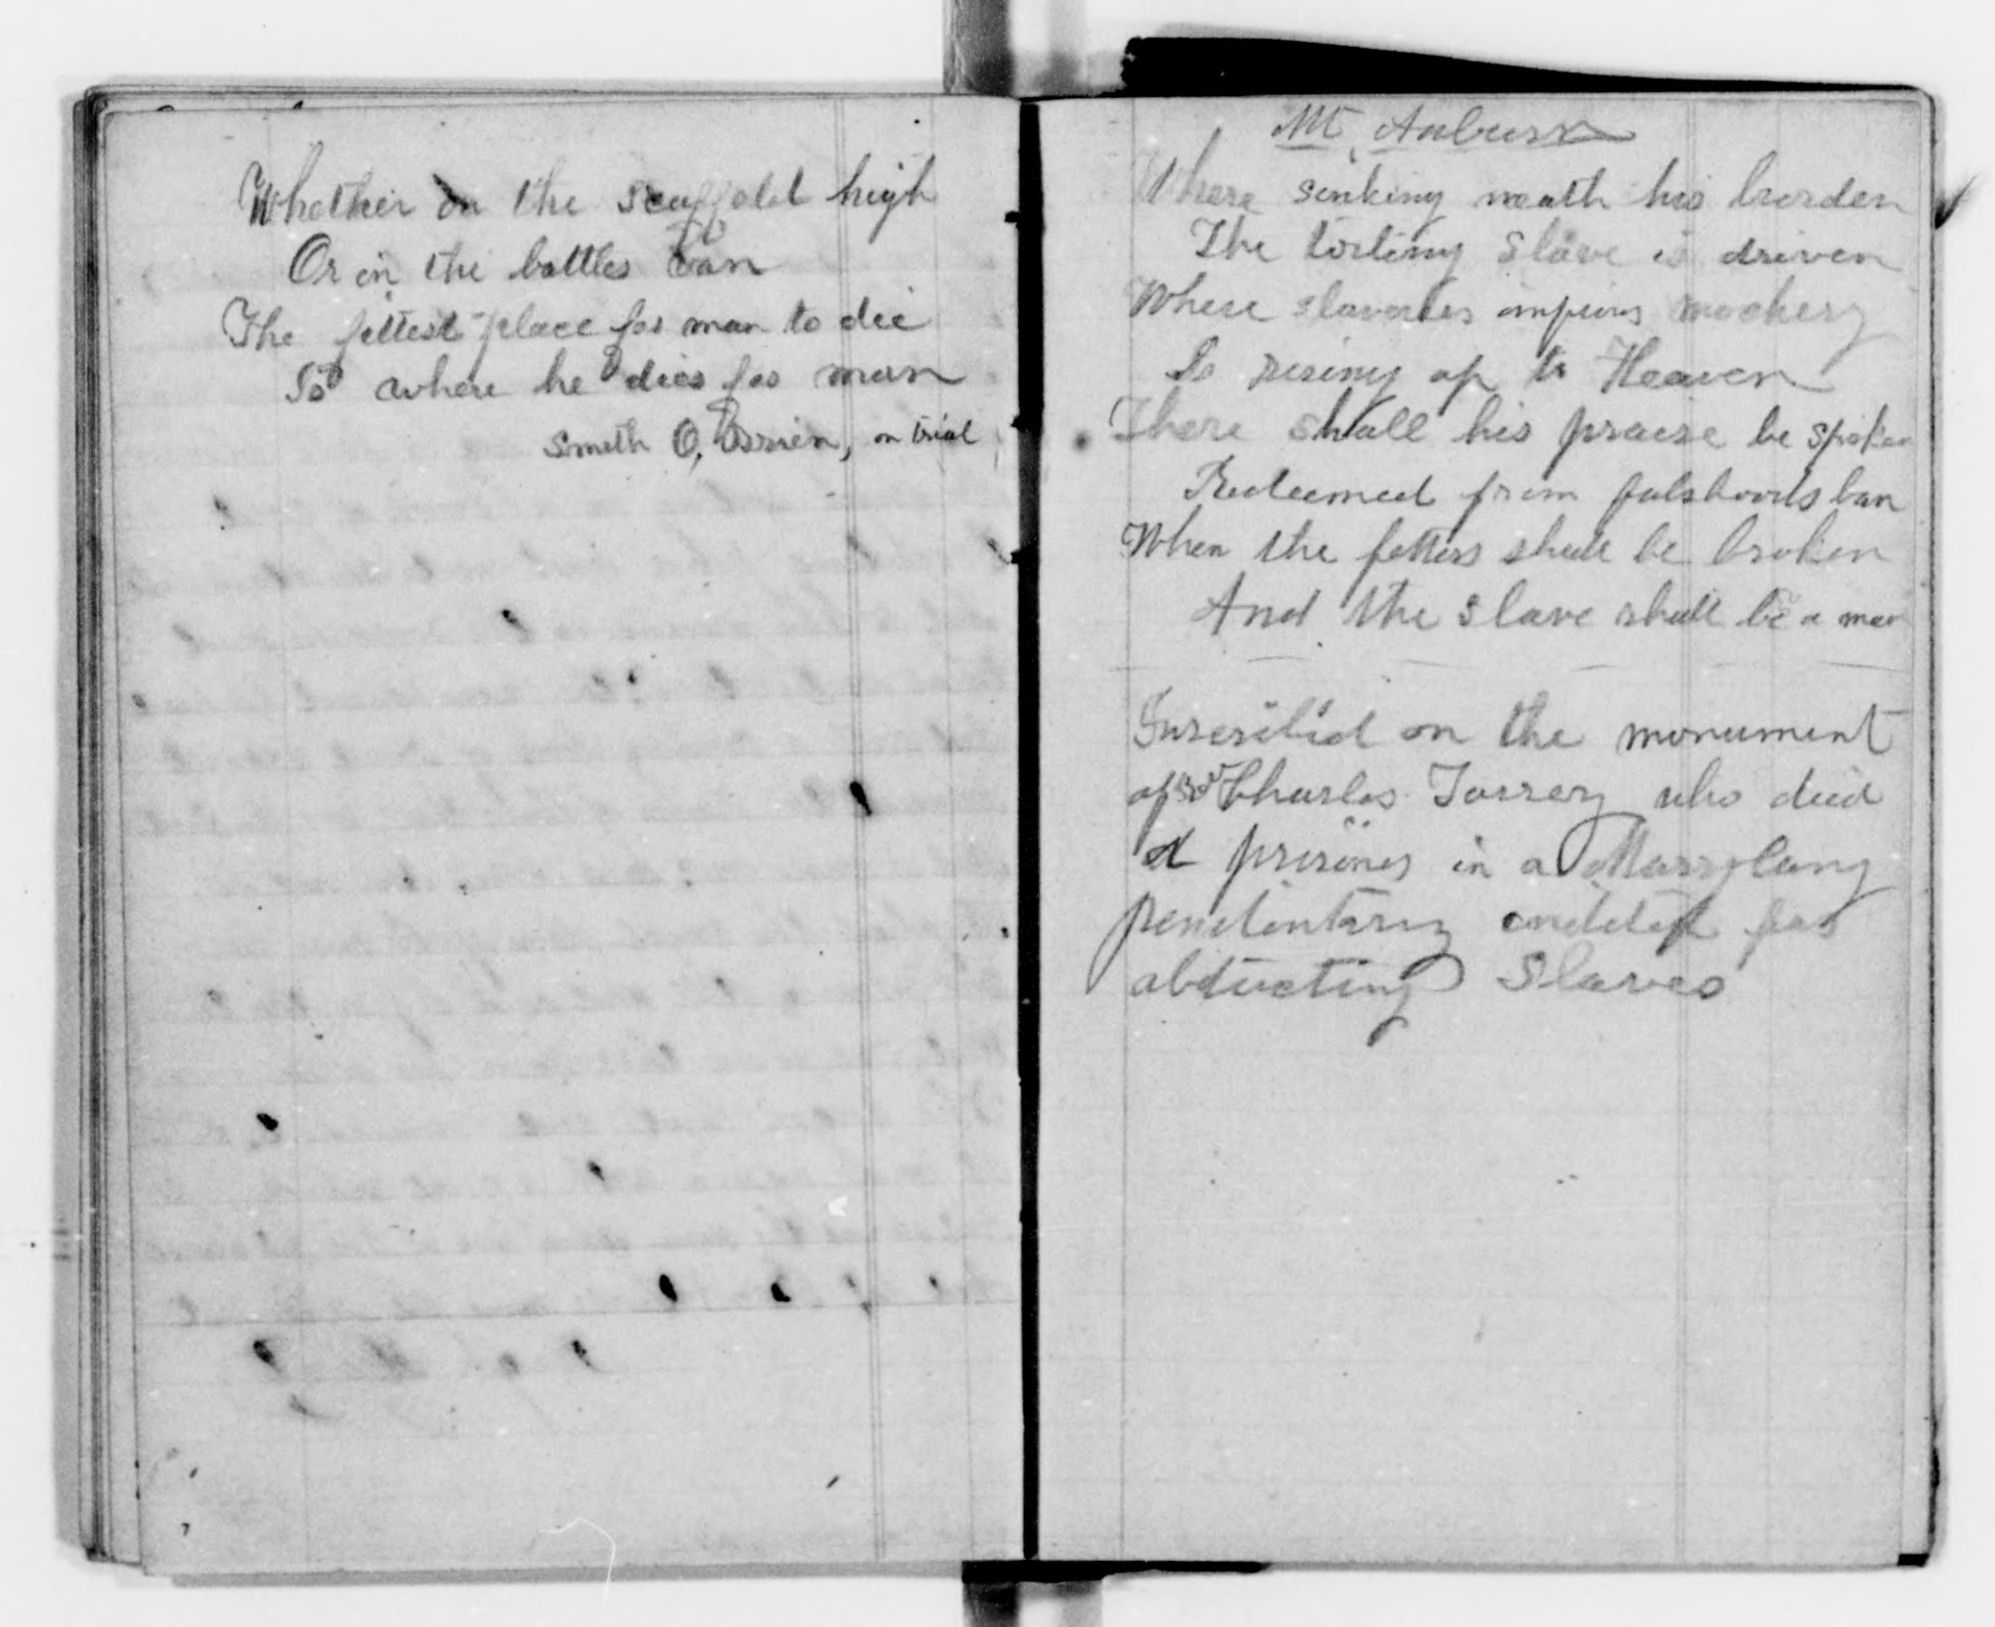 Whether on the scaffold high
Or in the battles van
The fittest place for man to die
Is where he dies for man
Smith O, Brien, on trial
Mt, Auburn
Where sinking neath his burden
The toiling slave is driven
Where slaveries impious mockery
Is rising up to Heaven
There shall his praise be spoken
Redeemed from falshoods ban
When the fetters shall be broken
And the slave shall be a man
Inscrib'd on the monument
of Revd Charles Torrey who died
A prisoner in a Marryland
penitentary for
abducting Slaves